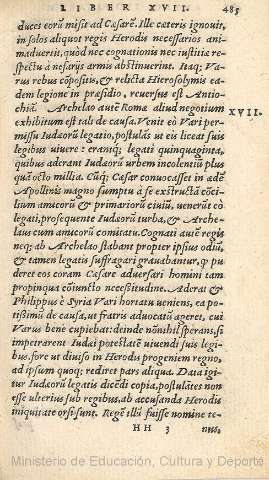 LIBER XVII. 485
duces eorũ misit ad Cæsarē. Ille cæteris ignouit,
in solos aliquot regis Herodis necessarios ani-
maduertit, quòd nec cognationis nec iustitiæ re-
spectu à nefarijs armis abstinuerint. Itaq; Va-
rus rebus cõpositis, & relicta Hierosolymis ea-
dem legione in præsidio, reuersus est Antio-
chiã. Archelao autẽ Romæ aliud negotium XVII.
exhibitum est tali de causa. Venit eò Vari per-
missu Iudæorũ legatio, postulãs ut eis liceat suis
legibus uiuere: erantq; legati quinquaginta,
quibus aderant Iudæorũ urbem incolentiũ plus
quã octo millia. Cũq; Cæsar conuocasset in ædẽ
Apollinis magno sumptu à se exstructã cõci-
lium amicorũ & primariorũ ciuiũ, uenerũt eò
legati, prosequente Iudæorũ turba, & Arche-
laus cum amicorũ comitatu. Cognati autẽ regis
neq; ab Archelao stabant propter ipsius odiũ,
& tamen legatis suffragari grauabantur, q pu
deret eos coram Cæsare aduersari homini tam
propinqua cõiuncto necessitudine. Aderat &
Philippus è Syria Vari hortatu ueniens, ea po-
tißimũ de causa, ut fratris aduocatũ ageret, cui
Varus bene cupiebat: deinde nõnihil sperans, si
impetrarent Iudæi potestatẽ uiuendi suis legi-
bus, fore ut diuiso in Herodis progeniem regno,
ad ipsum quoq; rediret pars aliqua. Data igi
tur Iudæorũ legatis dicẽdi copia, postulãtes non
esse ulterius sub regibus, ab accusanda Herodis
iniquitate orsi sunt. Regẽ illũ fuisse nomine te-
HH 3 nus,
Ministerio de Educación, Cultura y Deporte